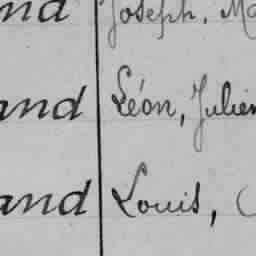 nd Joseph, Ma
and Léon, Julien
and Louis,